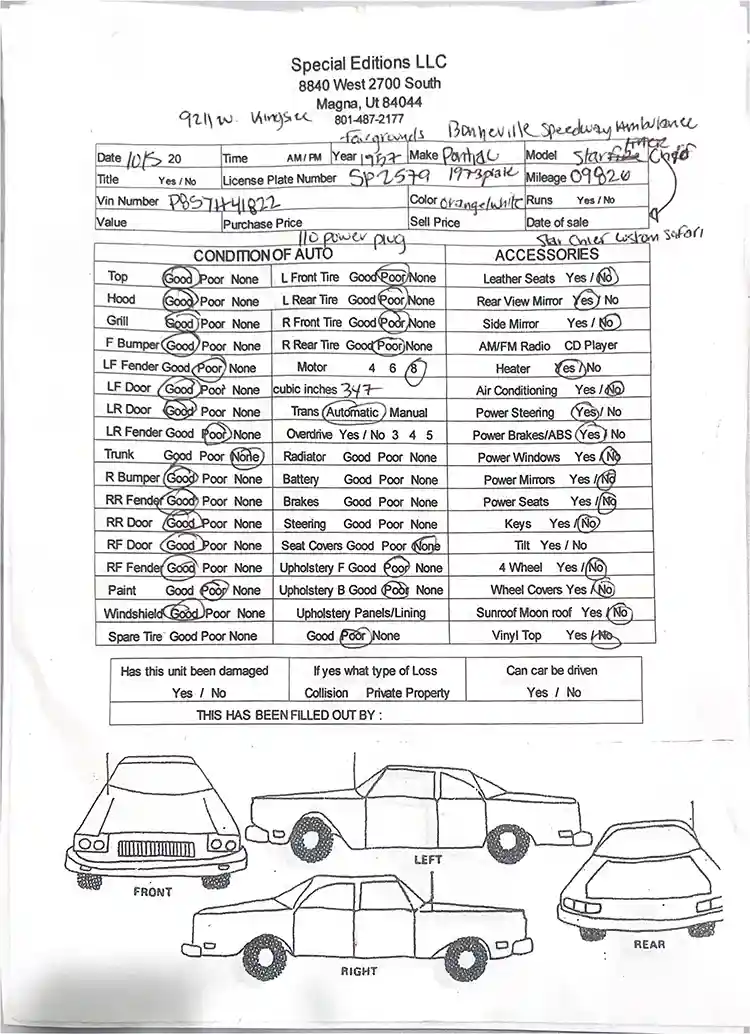 Special Editions LLC
8840 West 2700 South
Magna, Ut 84044
801-487-2177
9211 W.
Fairgrounds Bonneville Speedway Ambulance
Date 10/5 20 Time AM / PM Year 1957 Make Pontiac Model Star Chief
Title Yes / No License Plate Number SP2579 1973 plate Mileage 09820 Runs Yes / No
Vin Number P857H41822 Color Orange/White
Value Purchase Price Sell Price Date of sale
110 power plug Star Chief Custom Safari
CONDITION OF AUTO ACCESSORIES
Top Good Poor None L Front Tire Good Poor None Leather Seats Yes / No
Hood Good Poor None L Rear Tire Good Poor None Rear View Mirror Yes / No
Grill Good Poor None R Front Tire Good Poor None Side Mirror Yes / No
F Bumper Good Poor None R Rear Tire Good Poor None AM/FM Radio CD Player
LF Fender Good Poor None Motor 4 6 8 Heater Yes / No
LF Door Good Poor None cubic inches 347 Air Conditioning Yes / No
LR Door Good Poor None Trans Automatic / Manual Power Steering Yes / No
LR Fender Good Poor None Overdrive Yes / No 3 4 5 Power Brakes/ABS Yes / No
Trunk Good Poor None Radiator Good Poor None Power Windows Yes / No
R Bumper Good Poor None Battery Good Poor None Power Mirrors Yes / No
RR Fender Good Poor None Brakes Good Poor None Power Seats Yes / No
RR Door Good Poor None Steering Good Poor None Keys Yes / No
RF Door Good Poor None Seat Covers Good Poor None Tilt Yes / No
RF Fender Good Poor None Upholstery F Good Poor None 4 Wheel Yes / No
Paint Good Poor None Upholstery B Good Poor None Wheel Covers Yes / No
Windshield Good Poor None Upholstery Panels/Lining Sunroof Moon roof Yes / No
Spare Tire Good Poor None Good Poor None Vinyl Top Yes / No
Has this unit been damaged If yes what type of Loss Can car be driven
Yes / No Collision Private Property Yes / No
THIS HAS BEEN FILLED OUT BY :
LEFT
FRONT
REAR
RIGHT